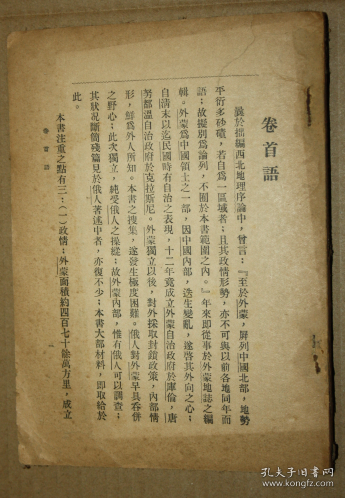 卷首語
曩於拙編西北地理序論中，曾言：『至於外蒙，屏列中國北部，地勢
平衍多砂磧，若自爲一區域者；且其政情形勢，亦不可與以前各地同年而
語；故擬別爲論列，不囿於本書範圍之內。』年來即從事於外蒙地誌之編
輯。外蒙爲中國領土之一部，因中國內部，迭生變亂，遂啓其外向之心；
自清末以迄民國時有自治之表現，十二年竟成立外蒙自治政府於庫倫，唐
努都溫自治政府於克拉斯尼。外蒙獨立以後，對外採取封鎖政策，內部情
形，鮮爲外人所知。本書之搜集，遂發生極度困難。俄人對外蒙早具吞併
之野心；此次獨立，純受俄人之操縱；故外蒙內部，惟有俄人可以調查；
其狀況斷簡殘篇見於俄人著述中者，亦復不少；本書大部材料，即取給於
此。
本書注重之點有三：(一)政情；外蒙面積約四百七十餘萬方里，成立
卷首語
孔夫子旧书网